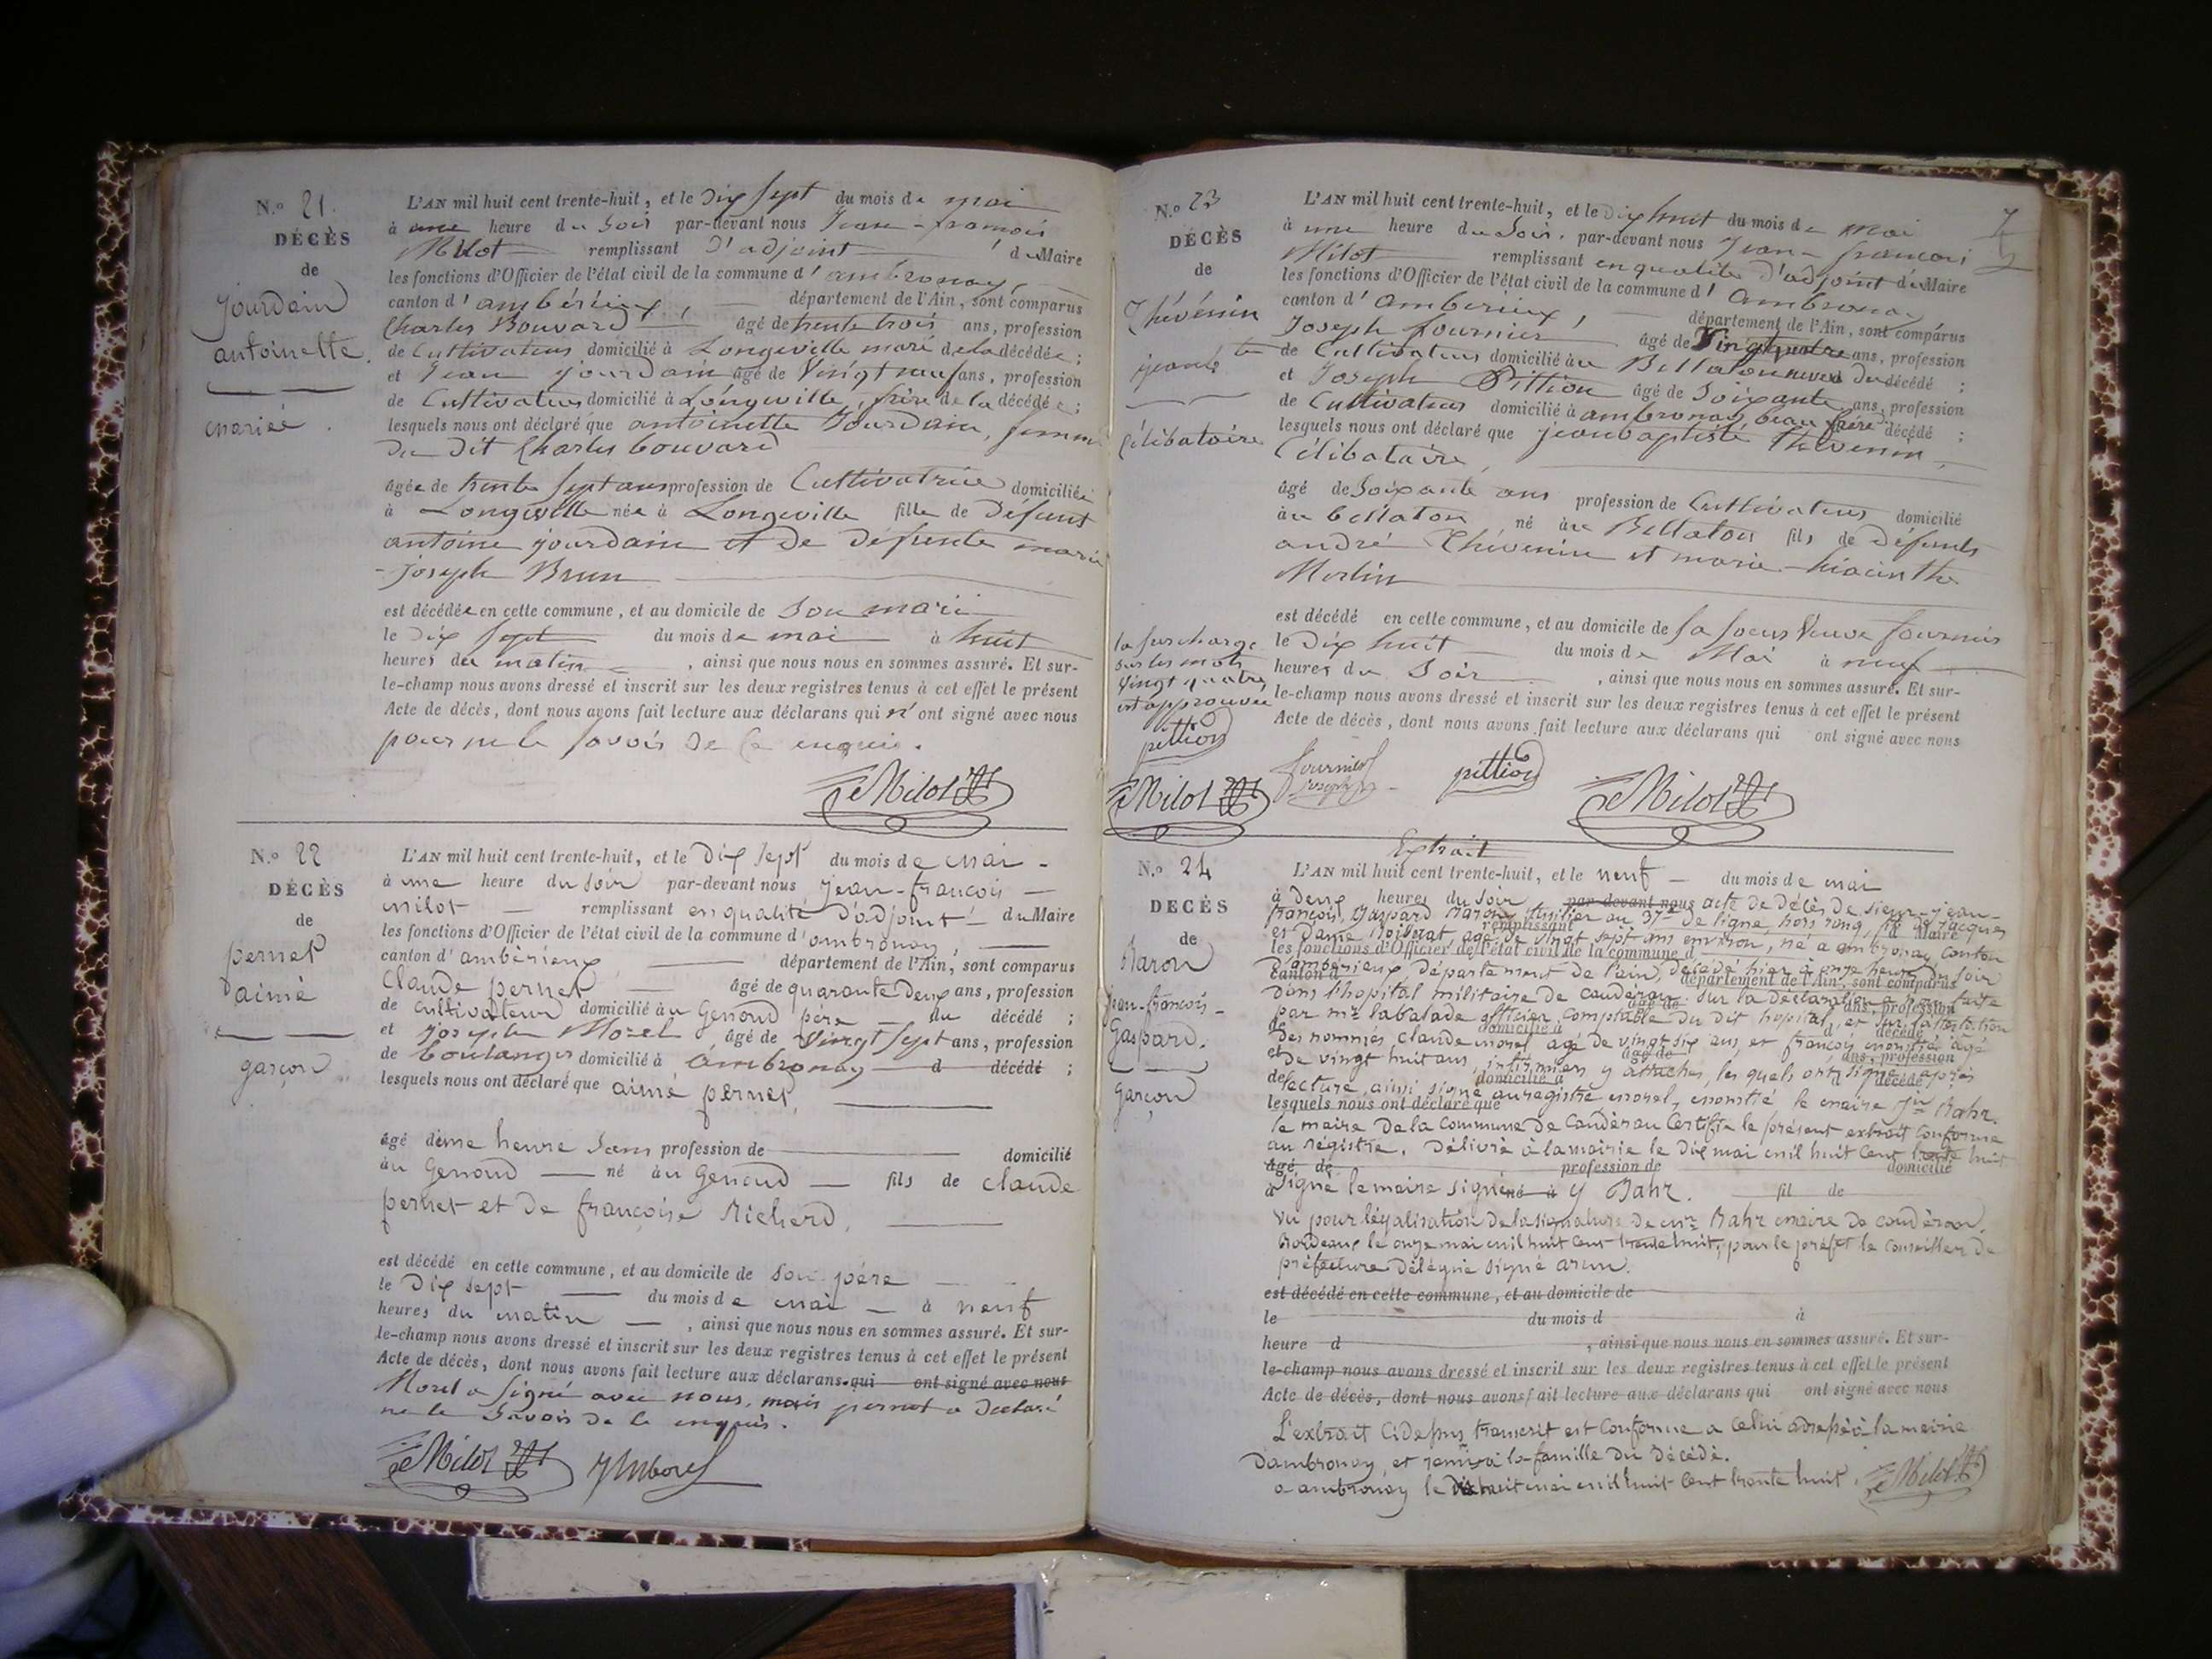 N.º 21.
DÉCÈS
de
jourdain
antoinette.
mariée.
L'AN mil huit cent trente-huit, et le Dix sept du mois de mai
à une heure du Soir par-devant nous Jean-francois
Milot remplissant D'adjoint du Maire
les fonctions d'Officier de l'état civil de la commune d'ambronay,
canton d'ambérieux, département de l'Ain, sont comparus
Charles Bouvard âgé de trente trois ans, profession
de Cultivateur domicilié à Longeville mari de la décédée;
et Jean jourdain âgé de Vingt neuf ans, profession
de Cultivateur domicilié à Longeville, frère de la décédée;
lesquels nous ont déclaré que antoinette Jourdain, femme
du dit Charles bouvard
âgée de trente sept ans profession de Cultivatrice domiciliée
à Longeville née à Longeville fille de Défunt
antoine jourdain et De Défunte marie
-joseph Brun
est décédée en cette commune, et au domicile de Son mari
le Dix sept du mois de mai à huit
heures du matin, ainsi que nous nous en sommes assuré. Et sur-
le-champ nous avons dressé et inscrit sur les deux registres tenus à cet effet le présent
Acte de décès, dont nous avons fait lecture aux déclarans qui n'ont signé avec nous
pour ne le savoir De ce enquis.
Milot
N.º 22
DÉCÈS
de
pernet
aimé
garçon
L'AN mil huit cent trente-huit, et le Dix sept du mois de mai -
à une heure du soir par-devant nous jean-francois
milot remplissant en qualité d'adjoint du Maire
les fonctions d'Officier de l'état civil de la commune d'ambronay,
canton d'ambérieux département de l'Ain, sont comparus
Claude pernet âgé de quarante Deux ans, profession
de cultivateur domicilié au Genoud père du décédé;
et joseph Morel âgé de Vingt sept ans, profession
de boulanger domicilié à Ambronay d décédé;
lesquels nous ont déclaré que aimé pernet,
âgé d'une heure Sans profession de domicilié
au Genoud né au Genoud fils de claude
pernet et de françoise Richerd,
est décédé en cette commune, et au domicile de son père
le Dix sept du mois de mai à neuf
heures du matin, ainsi que nous nous en sommes assuré. Et sur-
le-champ nous avons dressé et inscrit sur les deux registres tenus à cet effet le présent
Acte de décès, dont nous avons fait lecture aux déclarans qui ont signé avec nous
Morel a signé avec nous, mais pernet a Déclaré
ne le Savoir De ce enquis.
Milot
N.º 23
DÉCÈS
de
Thévénin
jean bte
célibatoire
L'AN mil huit cent trente-huit, et le dix huit du mois de mai
à une heure du Soir. par-devant nous Jean-francois
Milot remplissant en qualité d'adjoint du Maire
les fonctions d'Officier de l'état civil de la commune d'Ambronay
canton d'Amberieux, département de l'Ain, sont comparus
Joseph fournier âgé de Vingt quatre ans, profession
de Cultivateur domicilié au Bellaton neveu Du décédé;
et Joseph Pittion âgé de Soixante ans, profession
de Cultivateur domicilié à ambronay, beau frère décédé;
lesquels nous ont déclaré que jean baptiste thévenin,
Célibataire,
âgé de Soixante ans profession de Cultivateur domicilié
au bellaton né au Bellaton fils de Défunts
andré Thévenin et marie-hiacinthe
Merlin
est décédé en cette commune, et au domicile de sa soeur Veuve fournier
le Dix huit du mois de Mai à neuf
heures du Soir, ainsi que nous nous en sommes assuré. Et sur-
le-champ nous avons dressé et inscrit sur les deux registres tenus à cet effet le présent
Acte de décès, dont nous avons fait lecture aux déclarans qui ont signé avec nous
la surcharge
sur les mots
Vingt quatre
est approuvée
pittion
Milot
fournier
joseph
pittion
Milot
Extrait
N.º 24
DÉCÈS
de
Baron
jean-francois-
Gaspard.
Garçon
L'AN mil huit cent trente-huit, et le neuf du mois de mai
à Deux heures du Soir par-devant nous acte de Décès de sieur-jean-
françois, Gaspard Baron, fusilier au 37e de ligne, hors rang, fils de Jacques
remplissant d Maire
et Dame agé de vingt sept ans environ, né a ambronay canton
les fonctions d'Officier de l'état civil de la commune d
D'ambérieux, Département de l'ain, décédé hier à onze heures du soir
canton d département de l'Ain, sont comparus
Dans l'hopital militaire de caudéran. sur la Déclaration a nous faite
âgé de ans, profession
par mr labalade officier comptable du dit hopital, et sur l'attestation
de domicilié à d décédé
des nommés claude morel agé de vingt six ans, et françois agé
et âgé de ans, profession
de vingt huit ans, infirmiers y attachés, les quels ont signé après
de domicilié à d décédé
lecture, ainsi signé au registre morel, le maire Bahr.
lesquels nous ont déclaré que
le maire De la Commune De Caudéran Certifie le présent extrait Conforme
au régistre. Délivré à la mairie le Dix mai mil huit Cent trente huit
âgé de profession de domicilié
Signé le maire signé y Bahr.
à né à fil de
Vu pour légalisation de la signature de mr Bahr maire de caudéran.
Bordeaux le onze mai mil huit cent trente huit, pour le préfet le Conseiller de
préfecture Délégué signé
est décédé en cette commune, et au domicile de
le du mois d à
heure d, ainsi que nous nous en sommes assuré. Et sur-
le-champ nous avons dressé et inscrit sur les deux registres tenus à cet effet le présent
Acte de décès, dont nous avons fait lecture aux déclarans qui ont signé avec nous
L'extrait Cidessus transcrit est Conforme a celui adressé à la mairie
Dambronay, et remis à la famille Du Décédé.
a ambronay le Dix huit mai mil huit Cent trente huit.
Milot